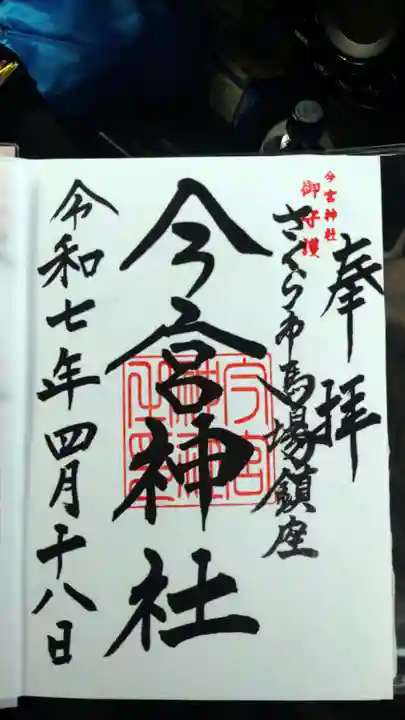 奉拝
今宮神社
御守護
さくら市馬場鎮座
今宮神社
令和七年四月十八日